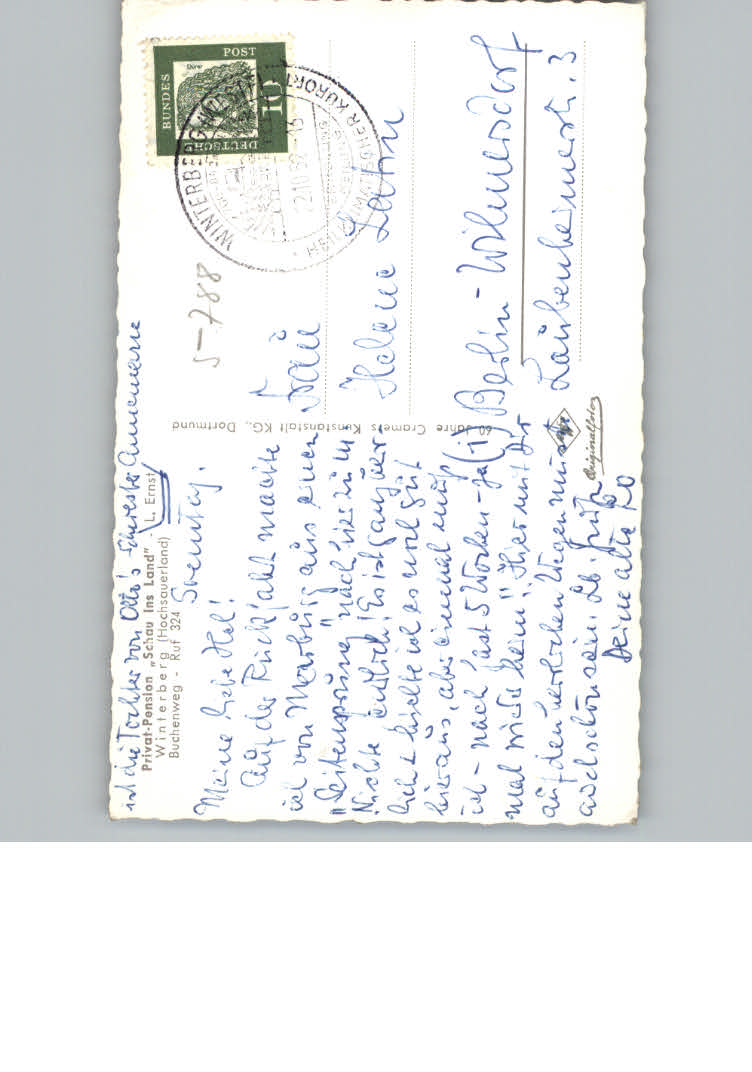 ist die Tochter von Otto's Schwester Annemarie
Privat-Pension „Schau Ins Land" - L. Ernst
Winterberg (Hochsauerland)
Buchenweg - Ruf 324
Sonntag.
Meine liebe Hel!
Auf der Rückfahrt machte
ich von Marburg aus einen
"Seitensprung" nach hier zu m.
Nichte endlich! Es ist ganz
hielte ich es noch gut
hieraus, aber einmal muß
ich - nach fast 5 Wochen - ja (!)
mal wieder heim". Hier mit Dir
auf den herrlichen Wegen
schön sein. Lb. Grüße
Deine alte Lo
60 Jahre Cramers Kunstanstalt KG., Dortmund
DEUTSCHE
BUNDES
POST
10
Dürer
WINTERBERG (WESTF)
2.10.62-13
HEILKLIMATISCHER KURORT
5-788
Frau
Helene Lahn
Berlin-Wilmersdorf
Laubenheimerstr. 3
Agfa
Originalfoto